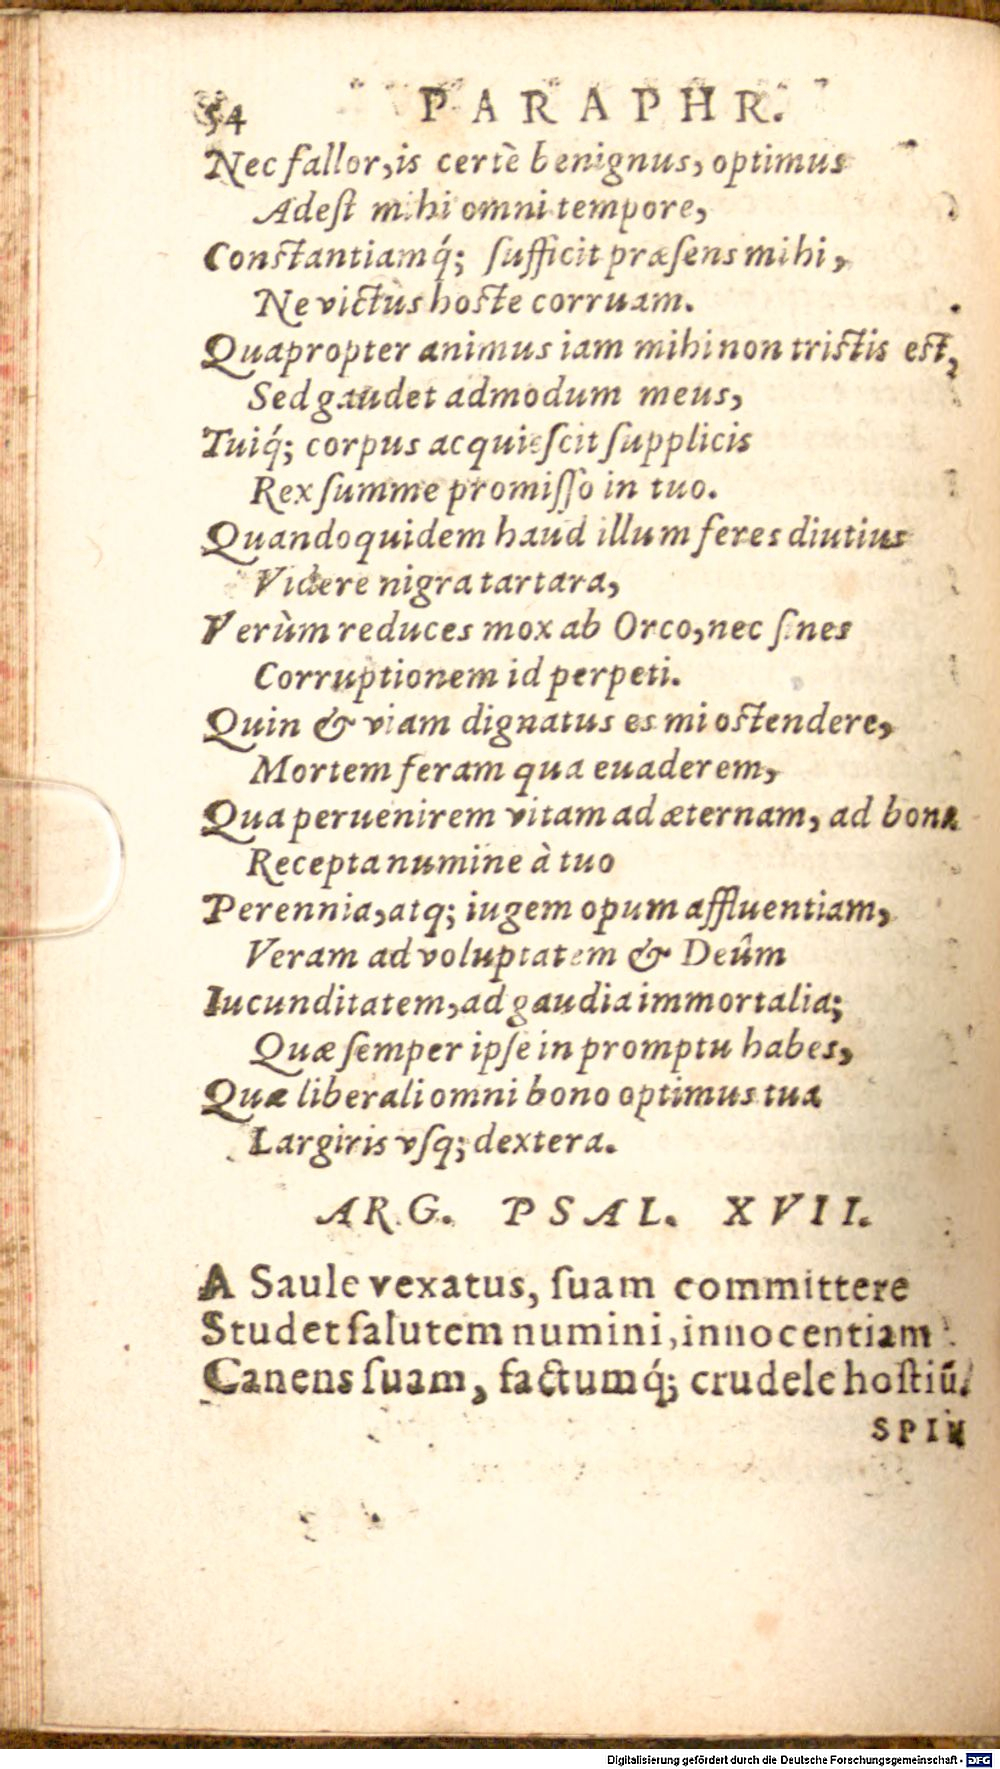 54 PARAPHR.
Nec fallor, is certè benignus, optimus
Adeſt mihi omni tempore,
Conſtantiamq́; ſufficit præſens mihi,
Ne victus hoſte corruam.
Quapropter animus iam mihi non triſtis eſt,
Sed gaudet admodum meus,
Tuiq́; corpus acquieſcit ſupplicis
Rex ſumme promiſſo in tuo.
Quandoquidem haud illum feres diutius
Videre nigra tartara,
Verùm reduces mox ab Orco, nec ſines
Corruptionem id perpeti.
Quin & viam dignatus es mi oſtendere,
Mortem feram qua euaderem,
Qua peruenirem vitam ad æternam, ad bona
Recepta numine à tuo
Perennia, atq; iugem opum affluentiam,
Veram ad voluptatem & Deûm
Iucunditatem, ad gaudia immortalia;
Quæ ſemper ipſe in promptu habes,
Quæ liberali omni bono optimus tua
Largiris vſq; dextera.
ARG. PSAL. XVII.
A Saule vexatus, ſuam committere
Studet ſalutem numini, innocentiam
Canens ſuam, factumq́; crudele hoſtiū.
SPIN
Digitalisierung gefördert durch die Deutsche Forschungsgemeinschaft - DFG